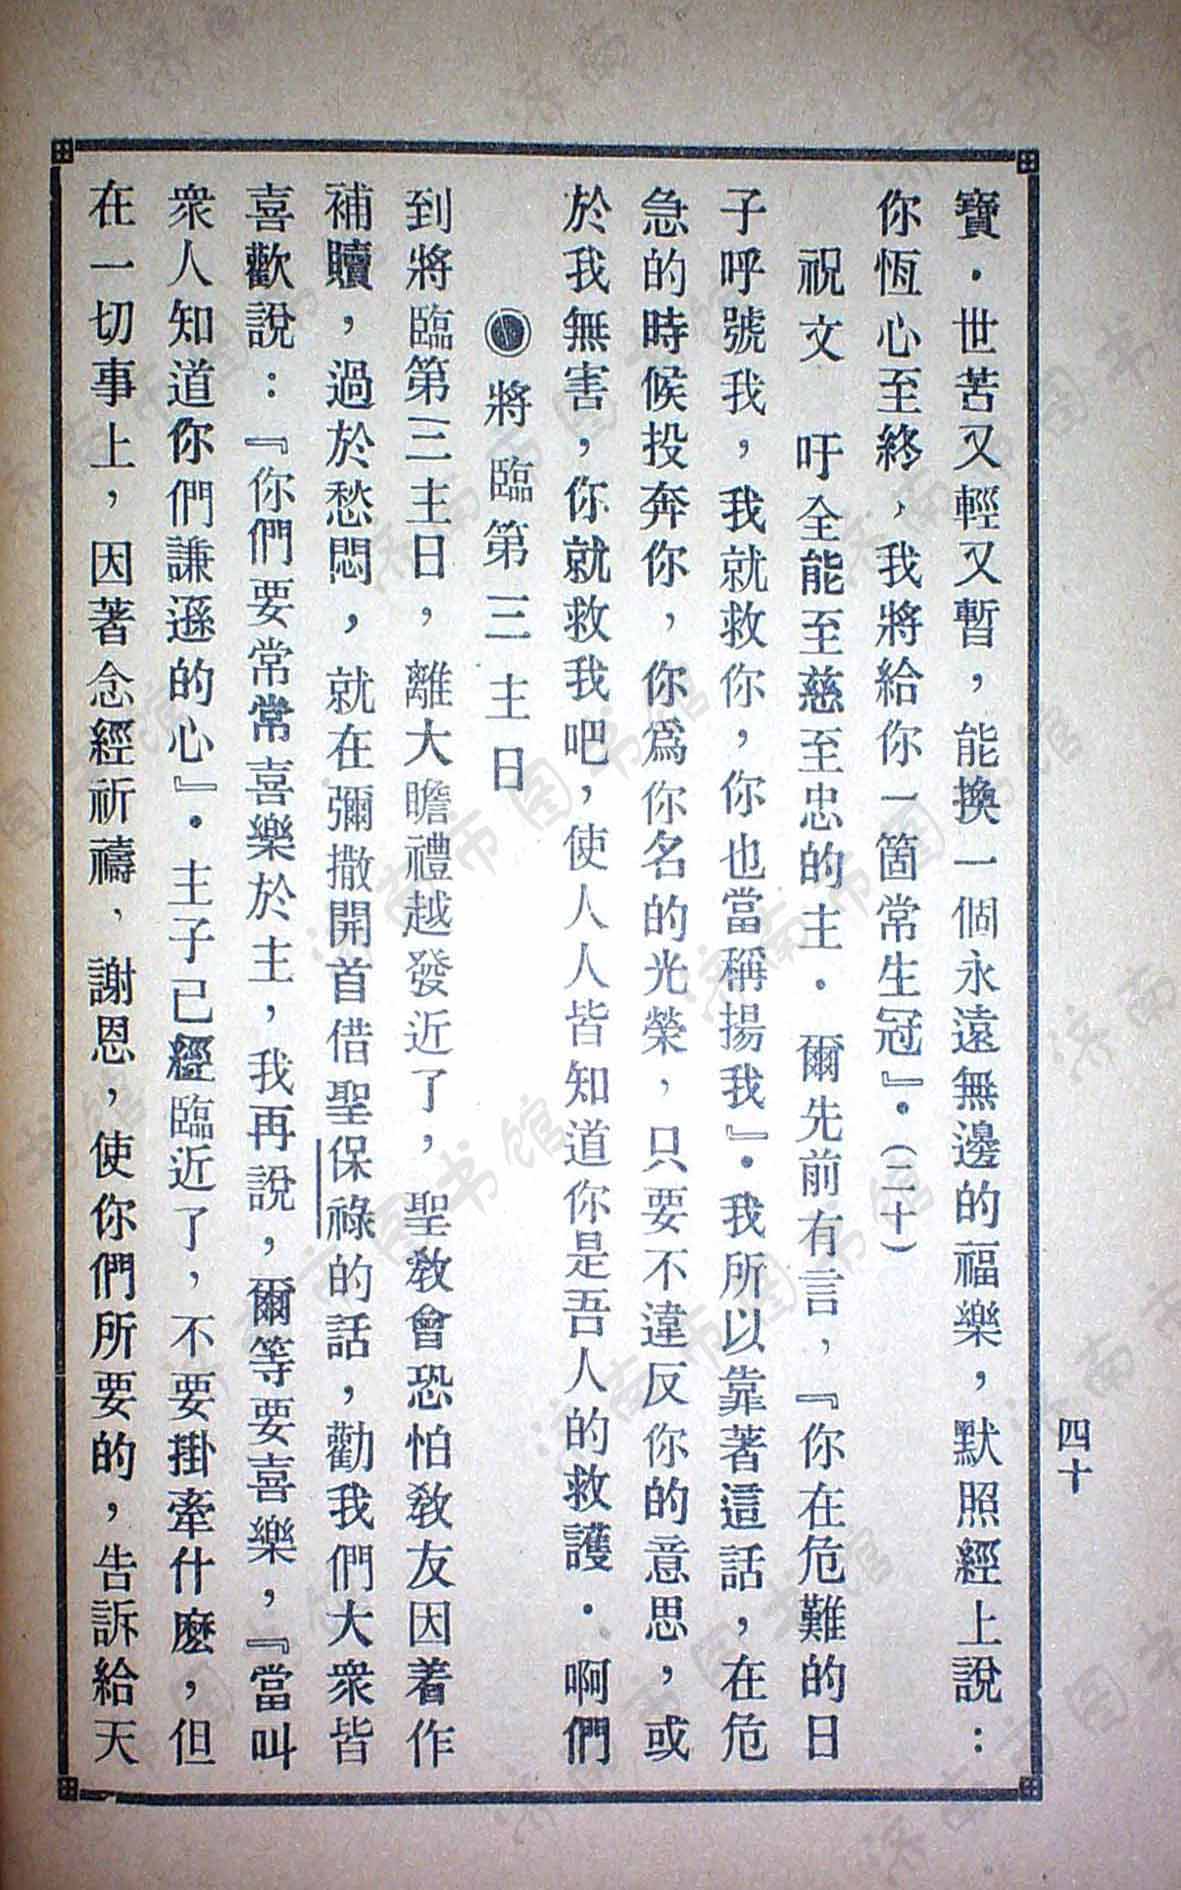 四十
寶．世苦又輕又暫，能換一個永遠無邊的福樂，默照經上說：
你恆心至終，我將給你一箇常生冠』．（二十）
祝文　吁全能至慈至忠的主．爾先前有言，『你在危難的日
子呼號我，我就救你，你也當稱揚我』．我所以靠著這話，在危
急的時候投奔你，你爲你名的光榮，只要不違反你的意思，或
於我無害，你就救我吧，使人人皆知道你是吾人的救護．啊們
將臨第三主日
到將臨第三主日，離大瞻禮越發近了，聖敎會恐怕敎友因着作
補贖，過於愁悶，就在彌撒開首借聖保祿的話，勸我們大衆皆
喜歡說：『你們要常常喜樂於主，我再說，爾等要喜樂，『當叫
衆人知道你們謙遜的心』．主子已經臨近了，不要掛牽什麽，但
在一切事上，因著念經祈禱，謝恩，使你們所要的，告訴給天
濟南市图书馆